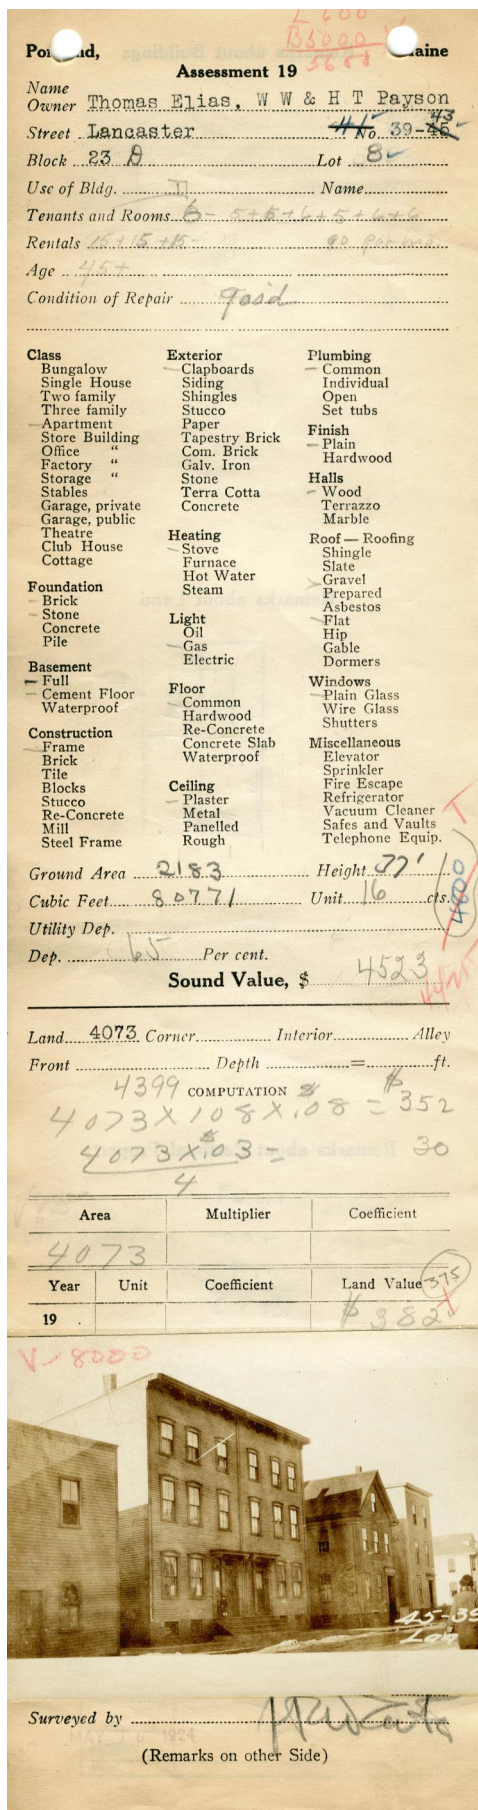 L 600
B5000
5688
Portland, Maine
Assessment 19
Name
Owner Thomas Elias, W W & H T Payson
Street Lancaster 41 No. 39-45 43
Block 23 D Lot 8
Use of Bldg. Name
Tenants and Rooms 6- 5+5+6+5+6+6
Rentals 15+15+15- 90 per mo
Age 45+
Condition of Repair good
Class
Bungalow
Single House
Two family
Three family
Apartment
Store Building
Office "
Factory "
Storage "
Stables
Garage, private
Garage, public
Theatre
Club House
Cottage
Foundation
Brick
Stone
Concrete
Pile
Basement
Full
Cement Floor
Waterproof
Construction
Frame
Brick
Tile
Blocks
Stucco
Re-Concrete
Mill
Steel Frame
Exterior
Clapboards
Siding
Shingles
Stucco
Paper
Tapestry Brick
Com. Brick
Galv. Iron
Stone
Terra Cotta
Concrete
Heating
Stove
Furnace
Hot Water
Steam
Light
Oil
Gas
Electric
Floor
Common
Hardwood
Re-Concrete
Concrete Slab
Waterproof
Ceiling
Plaster
Metal
Panelled
Rough
Plumbing
Common
Individual
Open
Set tubs
Finish
Plain
Hardwood
Halls
Wood
Terrazzo
Marble
Roof — Roofing
Shingle
Slate
Gravel
Prepared
Asbestos
Flat
Hip
Gable
Dormers
Windows
Plain Glass
Wire Glass
Shutters
Miscellaneous
Elevator
Sprinkler
Fire Escape
Refrigerator
Vacuum Cleaner
Safes and Vaults
Telephone Equip.
4800
Ground Area 2183 Height 37'
Cubic Feet 80771 Unit 16 cts.
Utility Dep.
Dep. 65 Per cent.
Sound Value, $ 4523
Land 4073 Corner Interior Alley
Front Depth = ft.
4399 COMPUTATION
4073 X 108 X .08 = $352
4073 X $.03 = 30
4
Area Multiplier Coefficient
4073
Year Unit Coefficient Land Value 375
19 $382
V-8000
45-39
Lan
Surveyed by
1924
(Remarks on other Side)